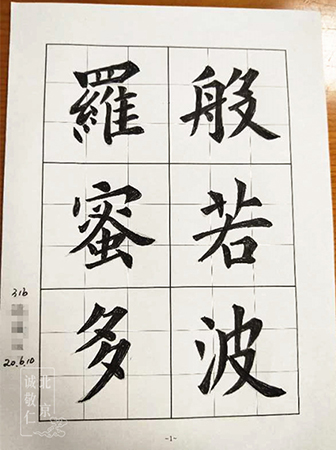 般若波
羅蜜多
316
20.6.10
北京
诚敬仁
-1-